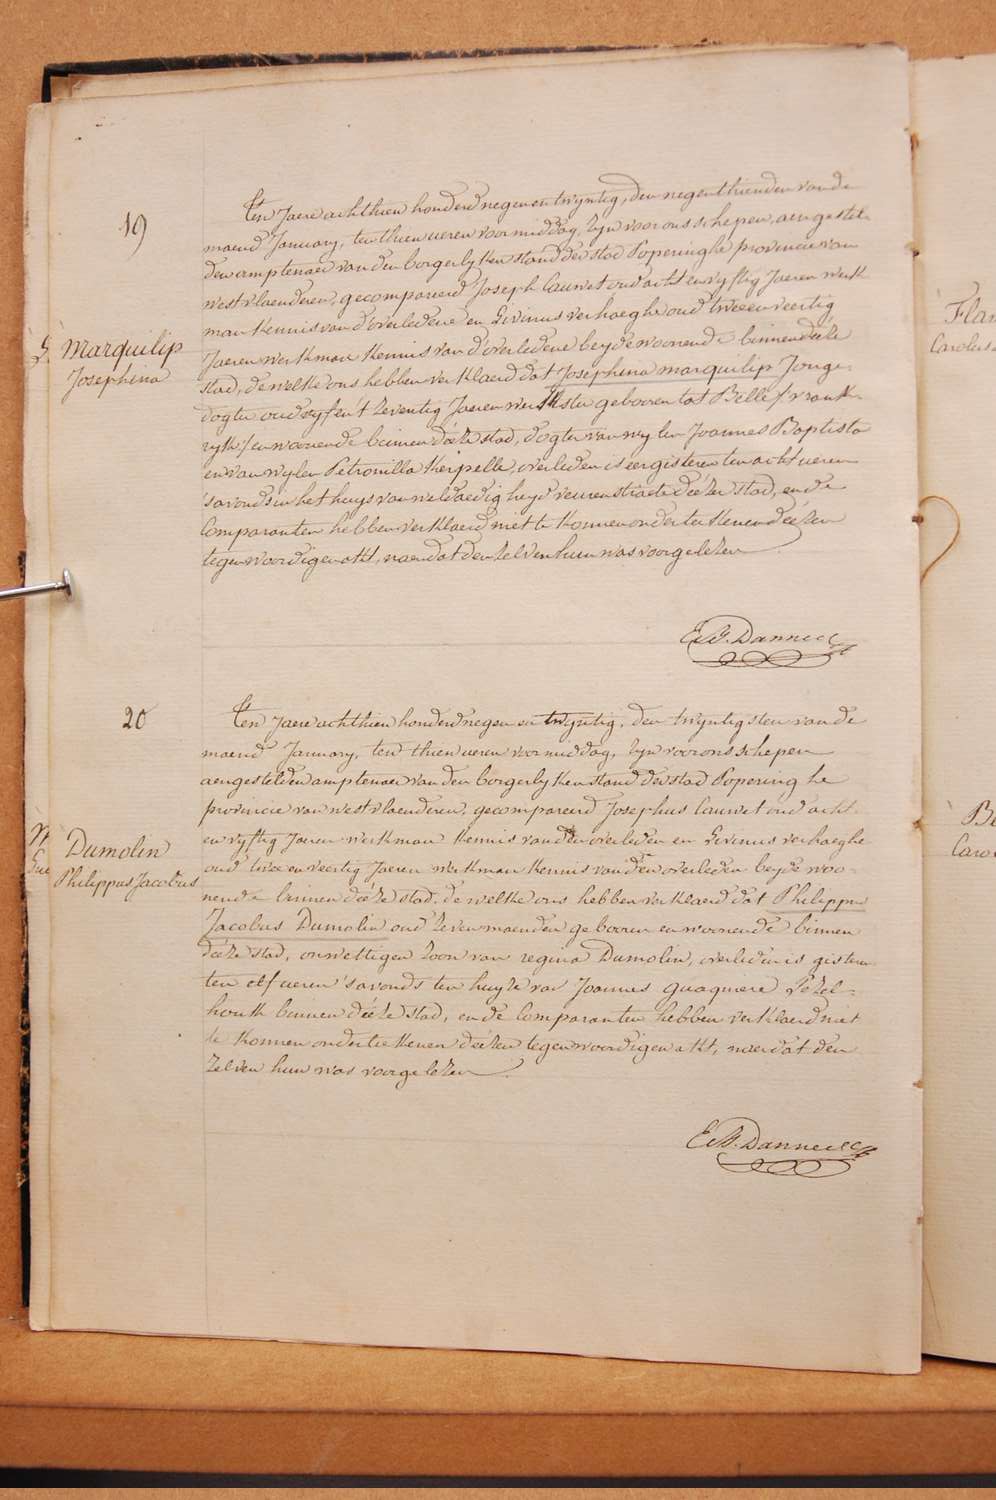 19
G. Marquilip
Josephina
Ten Jaere achthien honderd negen en twyntig, den negenthienden van de
maend January, ten thien ueren voormiddag, zyn voor ons schepen, aengestel-
den amptenaer van den borgerlyken stand der stad Poperinghe provincie van
westvlaenderen, gecompareerd Joseph Cauwet oud acht en vyftig Jaeren werk
man kennis van d'overledene en Livinus verhaeghe oud twee en veertig
Jaeren werkman kennis van d'overledene beyde woonende binnen déése
stad, de welke ons hebben verklaerd dat Josephina marquilip Jonge-
dogter oud vyf en 't zeventig Jaeren werkster gebooren tot Belle (vrank-
ryk) en woonende binnen déése stad, dogter van wylen Joannes Baptista
en van wylen Petronilla Keipelle, overleden is eergisteren ten acht ueren
's avonds in het huys van weldaedigheyd veurenstraete déézer stad, en de
Comparanten hebben verklaerd niet te konnen onderteekenen déézen
tegenwoordigen akt, naer dat den zelven hun was voorgelezen.
E. B. Danneel
20
W
Gue
Dumolin
Philippus Jacobus
Ten Jaere achthien honderd negen en twyntig, den twyntigsten van de
maend January, ten thien ueren voormiddag, zyn voor ons schepen
aengestelden amptenaer van den borgerlyken stand der stad Poperinghe
provincie van westvlaenderen, gecompareerd Josephus Cauwet oud acht
en vyftig Jaeren werkman kennis van den overleden en Livinus verhaeghe
oud twee en veertig Jaeren werkman kennis van den overleden beyde woo-
nende binnen dééze stad, de welke ons hebben verklaerd dat Philippus
Jacobus Dumolin oud zeven maenden gebooren en woonende binnen
dééze stad, onwettigen zoon van regina Dumolin, overleden is gisteren
ten elf ueren 's avonds ten huyze van Joannes quaquiere Pezel-
houk binnen dééze stad, en de Comparanten hebben verklaerd niet
te konnen onderteekenen déézen tegenwoordigen akt, naer dat den
zelven hun was voorgelezen.
E. B. Danneel
Flam
Carolus
Be
Caro